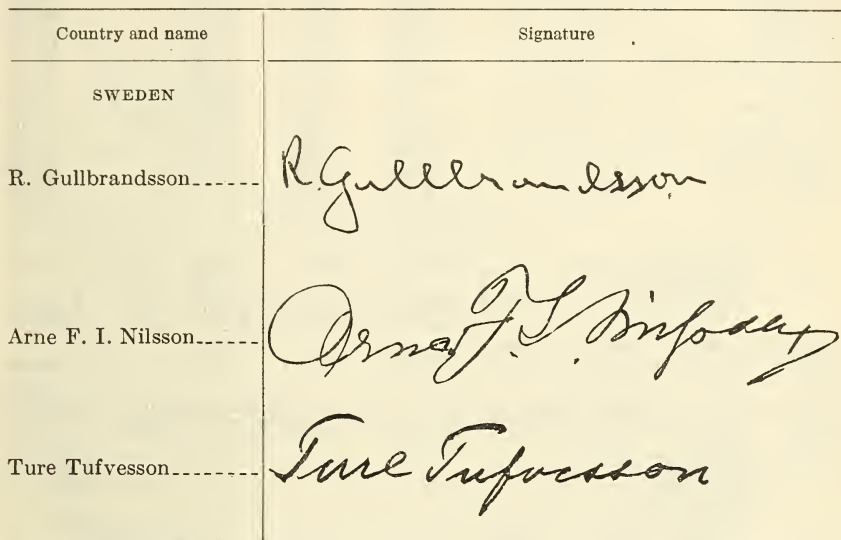 Country and name Signature
SWEDEN
R. Gullbrandsson------ R. Gullbrandsson
Arne F. I. Nilsson------ Arne F. I. Nilsson
Ture Tufvesson------- Ture Tufvesson